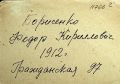 Борисенко
Федор Кириллович
1912 г.
Гражданская 97